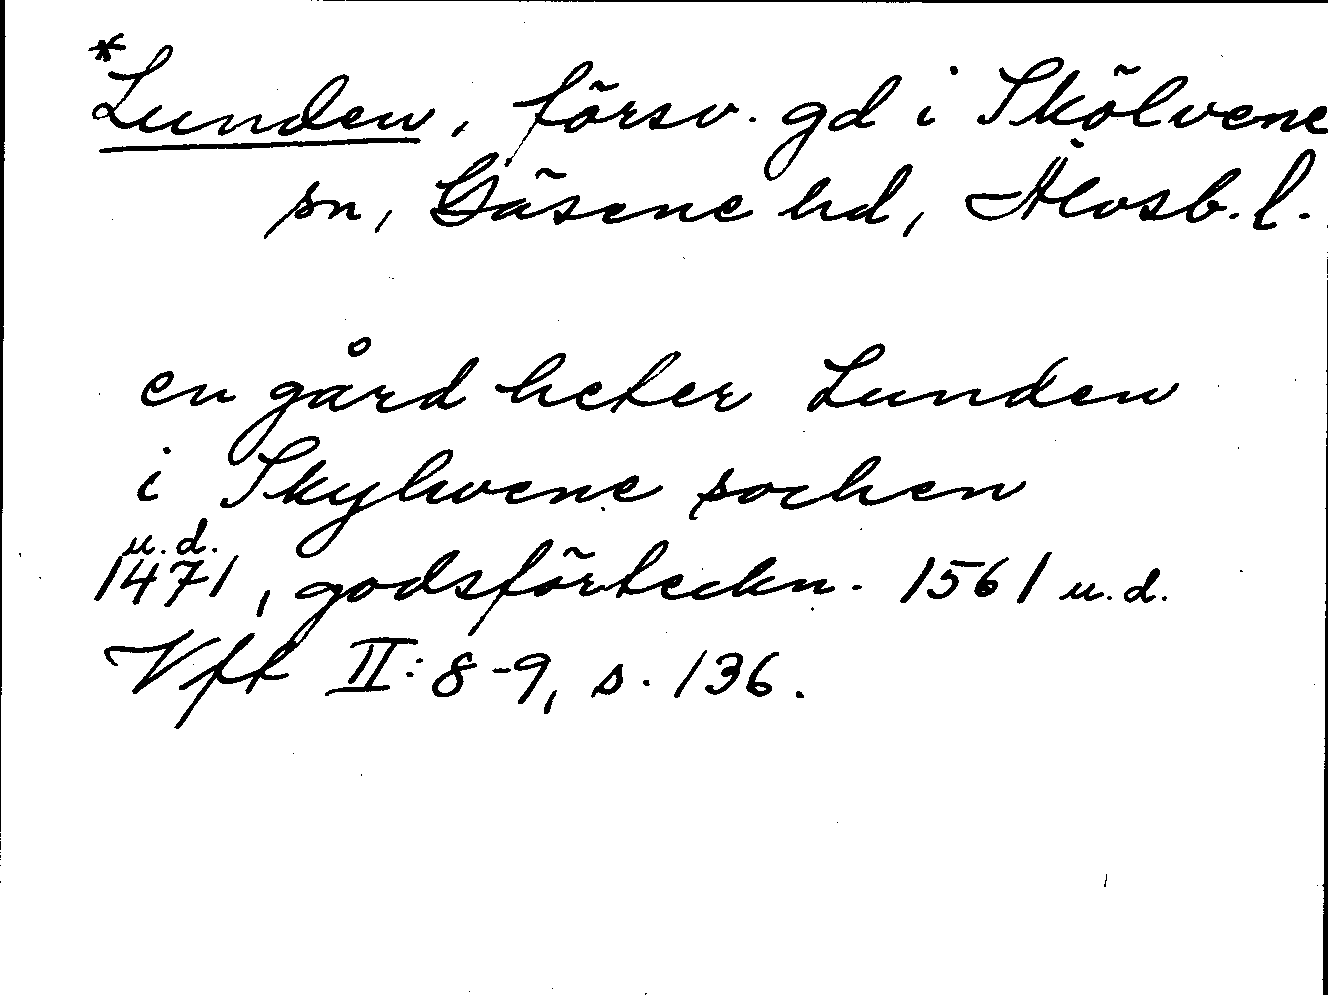 *Lunden, försv. gd i Skölvene
sn, Gäsene hd, Älvsb. l.
en gård heter Lunden
i Skylwene sochen
u.d.
1471, godsförteckn. 1561 u.d.
Vft II:8-9, s. 136.